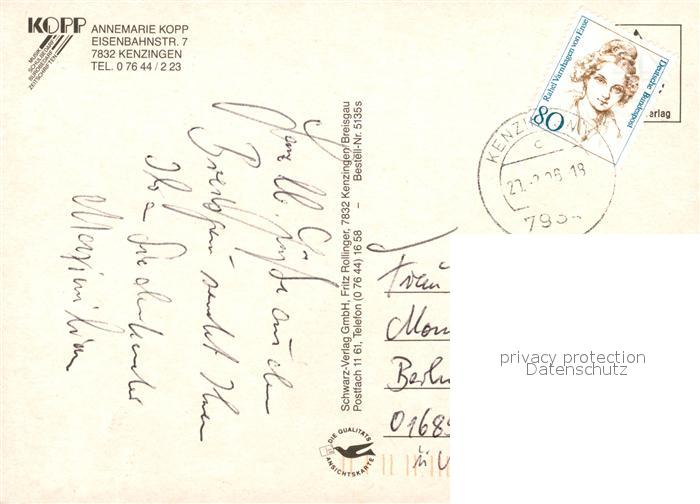 KOPP
MUSIK
SCHULBEDARF
BÜROBEDARF
ZEITSCHRIFTEN
ANNEMARIE KOPP
EISENBAHNSTR. 7
7832 KENZINGEN
TEL. 0 76 44 / 2 23
Rahel Varnhagen von Ense
Deutsche Bundespost
80
erlag
KENZINGEN
c
793
Grüße aus dem
Breisgau sendet Ihnen
Ihr
Maximilian
Schwarz-Verlag GmbH, Fritz Rollinger, 7832 Kenzingen/Breisgau
Postfach 11 61, Telefon (0 76 44) 16 58 – Bestell-Nr. 5135s
DIE QUALITÄTS
ANSICHTSKARTE
Frau
Mon
Berlin
0168
privacy protection
Datenschutz